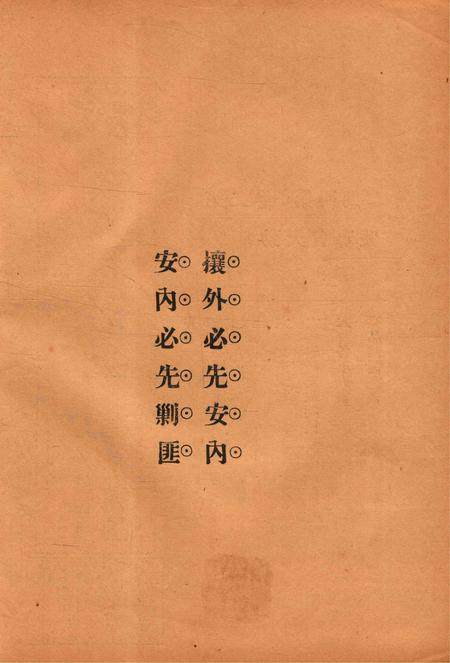 攘⊙外⊙必⊙先⊙安⊙內⊙
安⊙內⊙必⊙先⊙剿⊙匪⊙